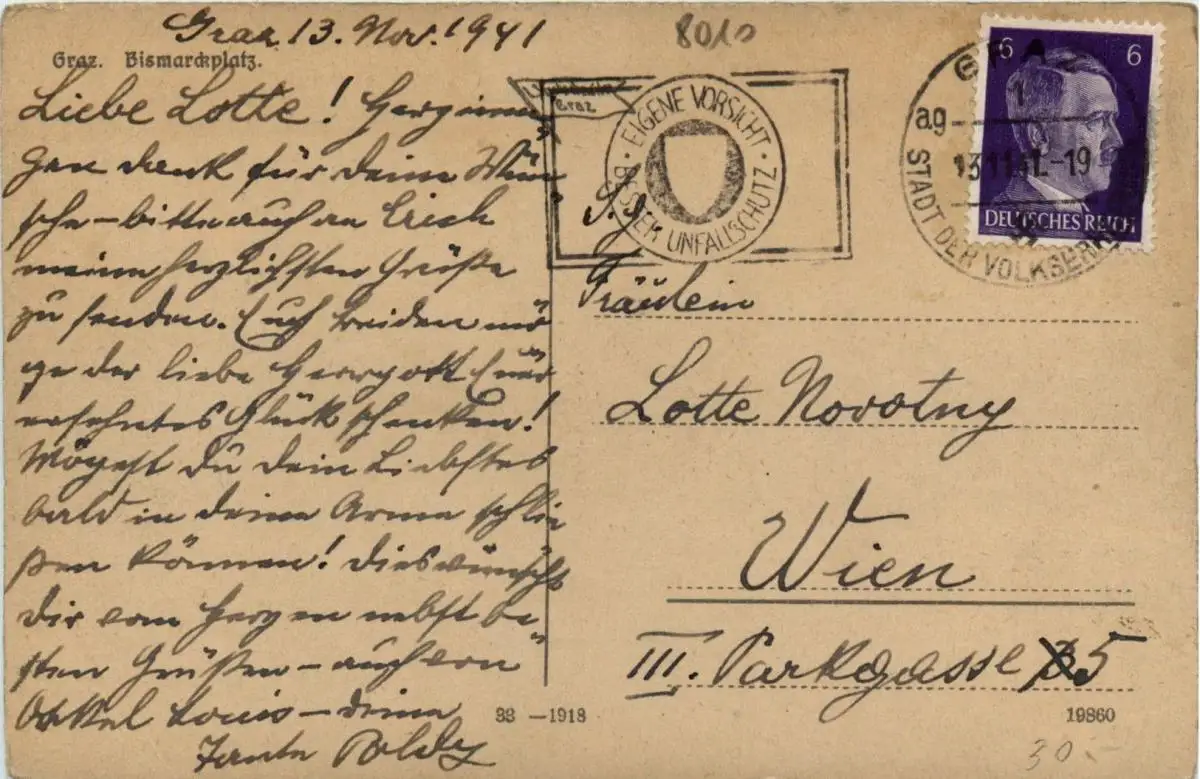 Graz, 13. Nov. 1941
8010
Graz. Bismarckplatz.
Liebe Lotte! Herzinni
gen dank für deine Wün
sche – bitte auch an Erich
meine herzlichsten Grüße
zu senden. Euch beiden mö
ge der liebe Herrgott Euer
ersehntes Glück schenken!
Mögest du dein Liebstes
bald in deine Arme schlie
ßen können! dies wünscht
dir vom Herzen nebst be
sten Grüßen – auch von
Onkel Louis – deine
Tante Poldy
Graz
EIGENE VORSICHT · BESTER UNFALLSCHUTZ ·
GRAZ
1
ag
13.11.41.-19
STADT DER VOLKSERH
6 6
DEUTSCHES REICH
Fräulein
Lotte Novotny
Wien
III. Parkgasse 5
33 -1918
19860
30.-